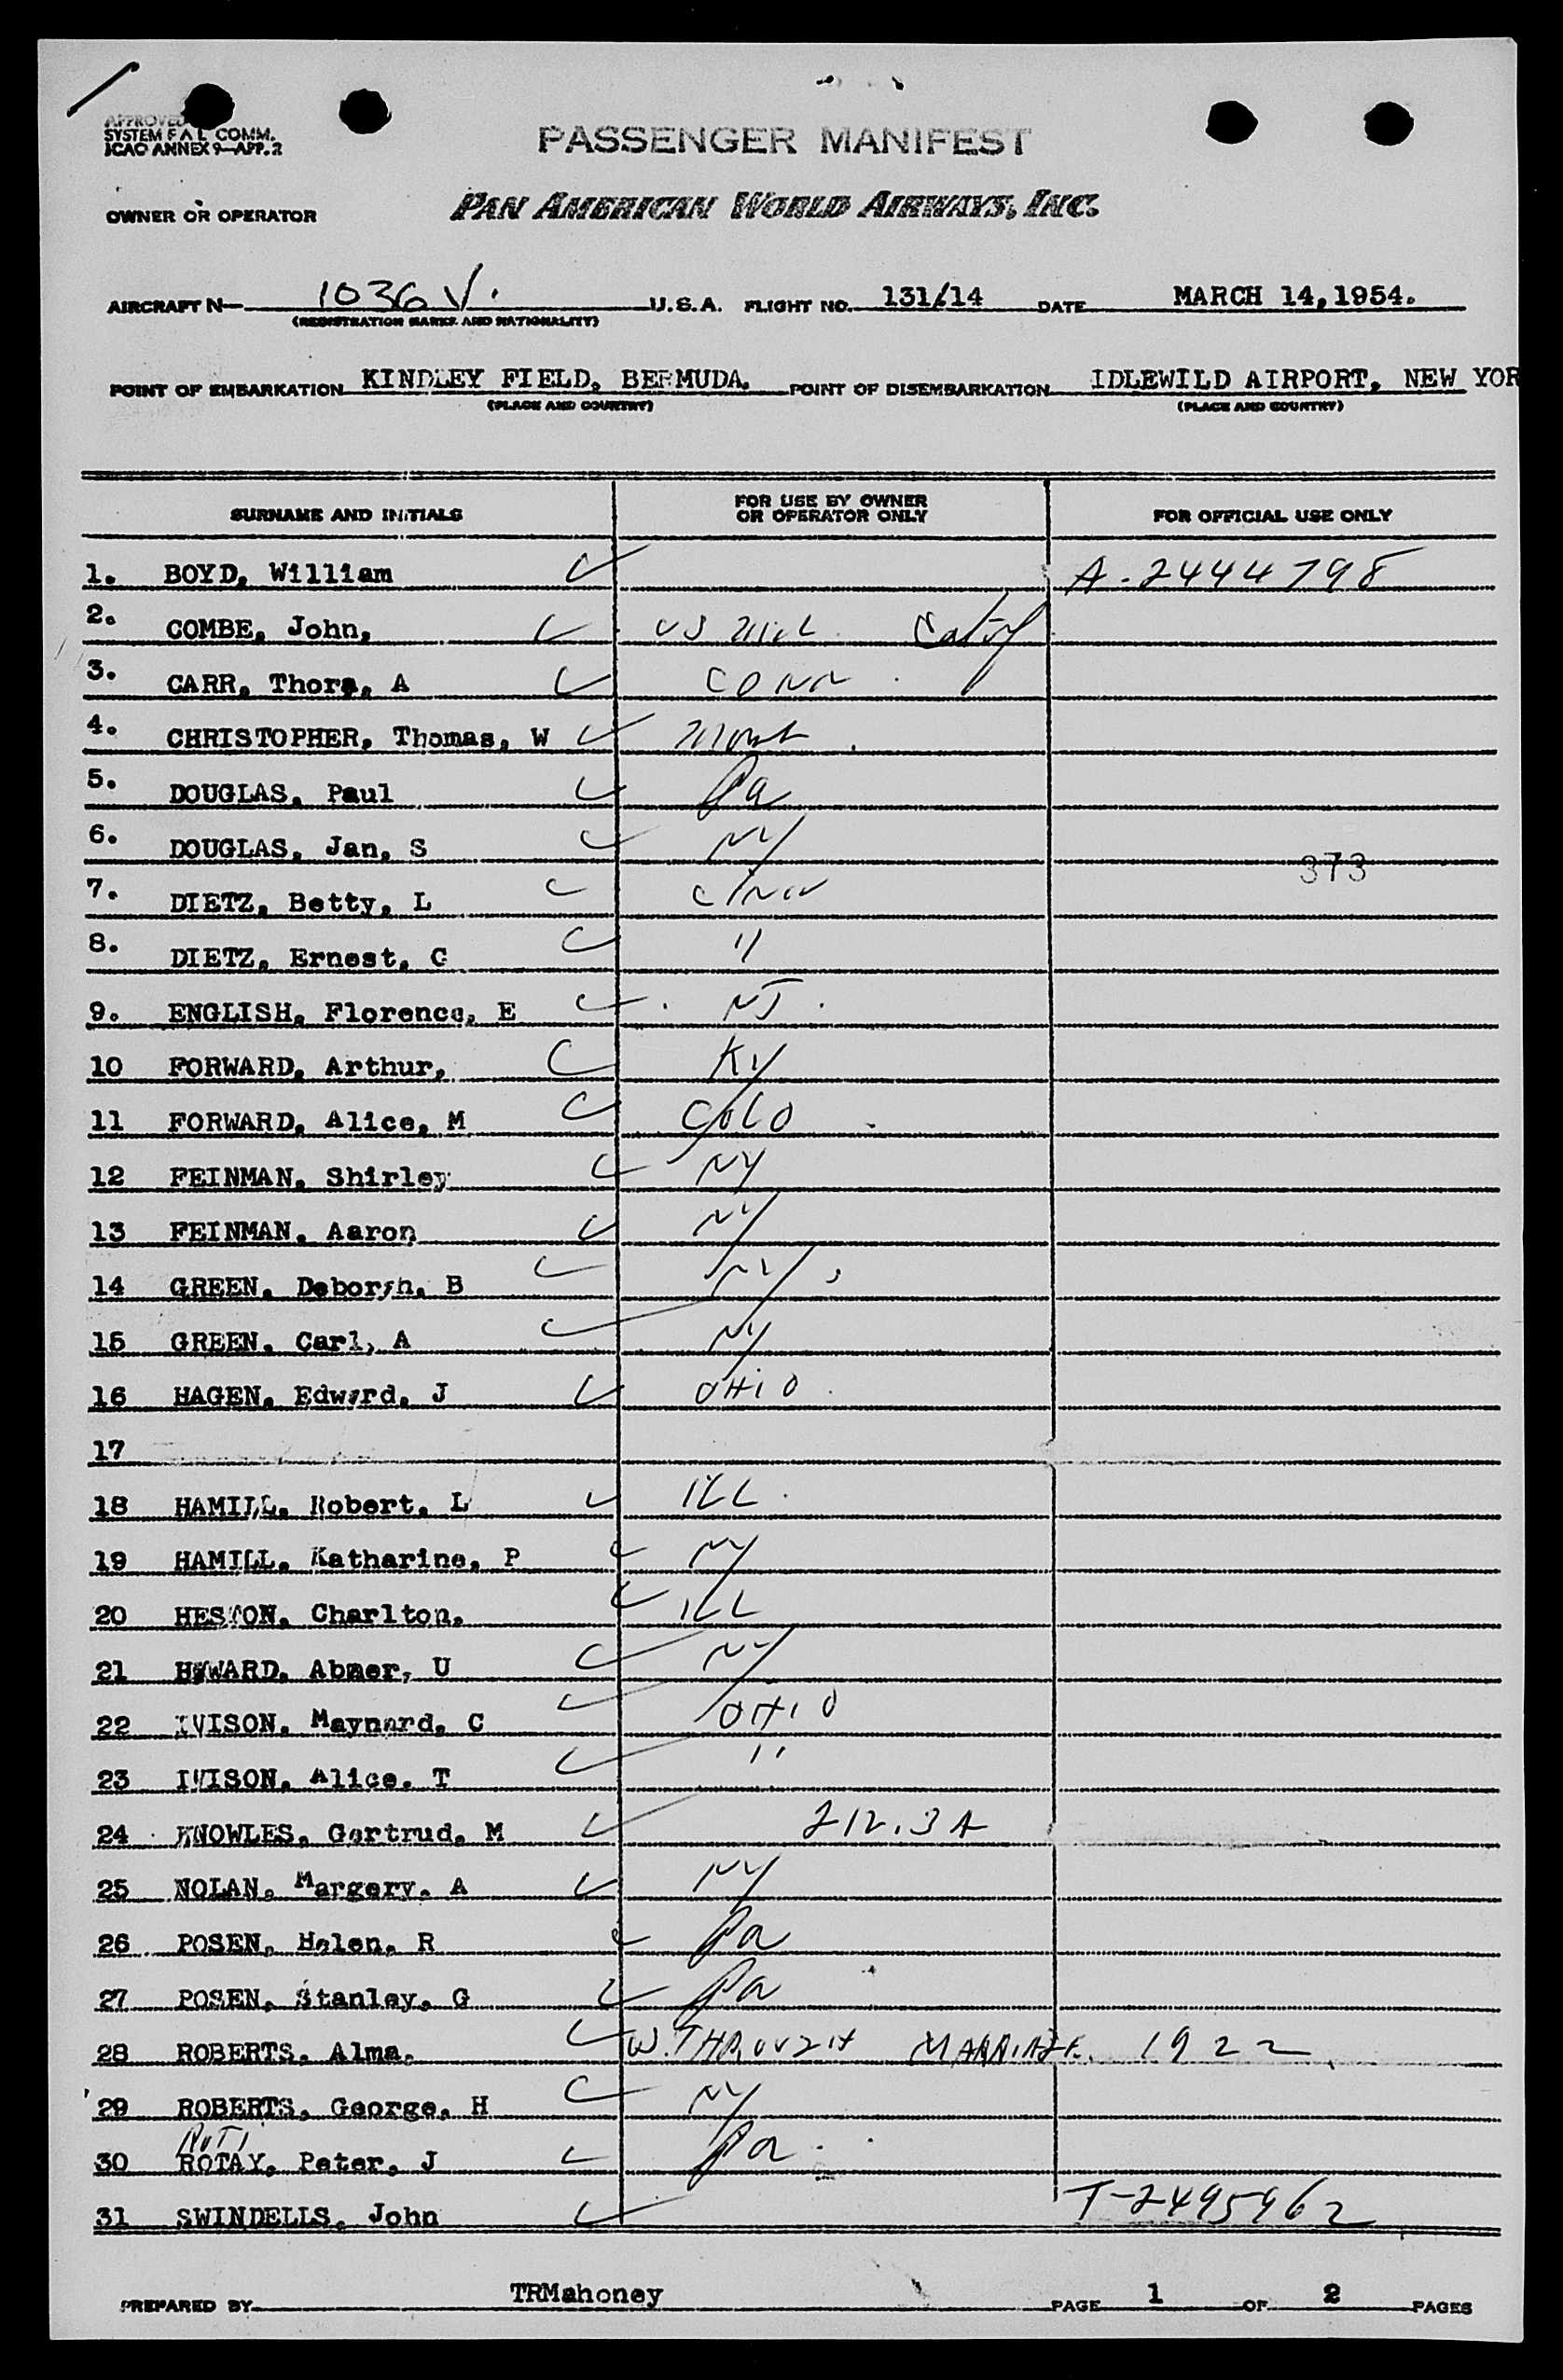 APPROVED
SYSTEM F A L COMM.
ICAO ANNEX 9-APP. 2
PASSENGER MANIFEST
OWNER OR OPERATOR PAN AMERICAN WORLD AIRWAYS, INC.
AIRCRAFT N- 1036 V. U.S.A. FLIGHT NO. 131/14 DATE MARCH 14, 1954.
(REGISTRATION MARKS AND NATIONALITY)
POINT OF EMBARKATION KINDLEY FIELD, BERMUDA. POINT OF DISEMBARKATION IDLEWILD AIRPORT, NEW YOR
(PLACE AND COUNTRY) (PLACE AND COUNTRY)
SURNAME AND INITIALS FOR USE BY OWNER OR OPERATOR ONLY FOR OFFICIAL USE ONLY
1. BOYD, William A-2444798
2. COMBE, John, US
3. CARR, Thora, A CONN
4. CHRISTOPHER, Thomas, W
5. DOUGLAS, Paul Pa
6. DOUGLAS, Jan, S NY
373
7. DIETZ, Betty, L
8. DIETZ, Ernest, C "
9. ENGLISH, Florence, E NJ.
10 FORWARD, Arthur, KY
11 FORWARD, Alice, M COLO
12 FEINMAN, Shirley NY
13 FEINMAN, Aaron NY
14 GREEN, Deborah, B NY
15 GREEN, Carl, A NY
16 HAGEN, Edward, J OHIO
17
18 HAMILL, Robert, L ILL
19 HAMILL, Katharine, P NY
20 HESTON, Charlton, ILL
21 HOWARD, Abmer, U NY
22 IVISON, Maynard, C OHIO
23 IVISON, Alice, T "
24 KNOWLES, Gertrud, M 212.3A
25 NOLAN, Margery, A NY
26 POSEN, Helen, R Pa
27 POSEN, Stanley, G Pa
28 ROBERTS, Alma, W. THROUGH MARRIAGE. 1922
29 ROBERTS, George, H NY
30 ROTAY, Peter, J Pa
31 SWINDELLS, John T-2495962
PREPARED BY TRMahoney PAGE 1 OF 2 PAGES